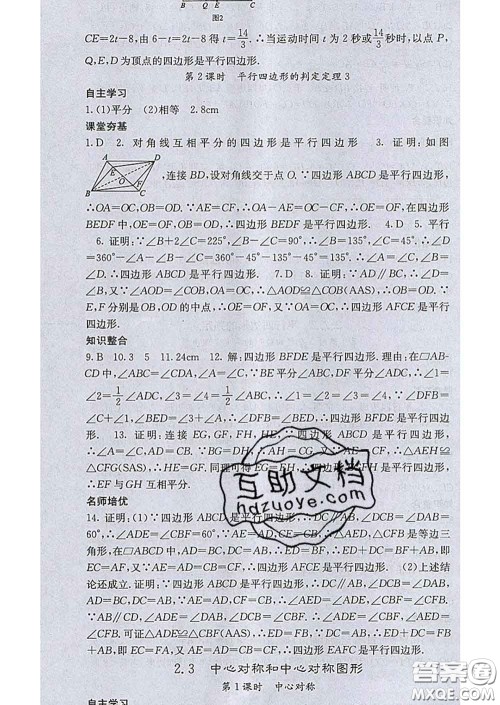 B Q E C
图2
CE=2t-8,由 6-t=2t-8得 t=14/3.∴当运动时间 t 为 2 秒或14/3秒时,以点 P,
Q,E,D 为顶点的四边形是平行四边形.
第 2 课时 平行四边形的判定定理 3
自主学习
1.(1)平分 (2)相等 2.8cm
课堂夯基
1.D 2. 对角线互相平分的四边形是平行四边形 3. 证明:如图
A D E O F B C
,连接 BD,设对角线交于点 O.∵四边形 ABCD 是平行四边形,
∴OA=OC,OB=OD.∵AE=CF,∴OA-AE=OC-CF,∴OE=OF,在四边形
BEDF 中,OE=OF,OB=OD,∴四边形 BEDF 是平行四边形. 4.D 5. 平行
6. 证明:∵∠B+2∠C=225°,∠B-∠C=90°,∴∠B=135°,∠C=45°.∴∠D=
360°-∠A-∠B-∠C=360°-45°-135°-45°=135°.∴∠A=∠C,∠B=
∠D.∴四边形 ABCD 是平行四边形. 7.D 8. 证明:∵AD∥BC,∴∠D=
∠B,又∵∠AOD=∠COB,OA=OC,∴△AOD≌△COB(AAS),∴OD=OB.∵
E,F 分别是 OB,OD 的中点,∴OE=OF,又∵OA=OC,∴四边形 AFCE 是平行
四边形.
知识整合
9.B 10.3 5 11.24cm 12. 解:四边形 BFDE 是平行四边形. 理由:在▱AB-
CD 中,∠ABC=∠CDA,∠A=∠C.∵BE 平分∠ABC,DF 平分∠ADC,∴∠1=
∠2=1/2∠ADC,∠3=∠4=1/2
∠C+∠1,∠BED=∠3+∠A,∴∠DFB=∠BED.∴四边形 BFDE 是平行四边
形. 13. 证明:连接 EG,GF,FH,HE.∵四边形 ABCD 是平行四边形,
∴△AEH≌△
CFG(SAS),∴EH=GF.同理可得 EG=FH,∴四边形
∴EF 与 GH 互相平分.
名师培优
14. 证明:(1)∵四边形 ABCD 是平行四边形,
60°,∴∠ADE=∠CBF=60°.∵AE=AD,CF=CB,∴△AED,△CFB 是等边三
角形,在▱ABCD 中,AD=BC,DC∥AB,∴ED=BF.∴ED+DC=BF+AB,即
EC=AF.又∵DC∥AB,即 EC∥AF,∴四边形 AFCE 是平行四边形. (2)上述结
论还成立.证明:∵四边形 ABCD 是平行四边形,∴DC∥AB,∠CDA=∠CBA,
AD=BC,DC=AB,∴∠ADE=∠CBF.∵AE=AD,CF=CB,∴∠AED=∠ADE,
∠CFB=∠CBF.∴∠AED=∠CFB.又∵AD=BC,∠ADE=∠CBF.
∴可证△ADE≌△CBF(AAS),∴ED=FB.∵DC=AB,∴ED+DC=FB+AB,即
EC=FA.又∵DC∥AB,∴四边形 AFCE 是平行四边形.
2.3 中心对称和中心对称图形
第 1 课时 中心对称
自主学习
互助文档
hdzuoye.com
答案圈
MXQE.COM